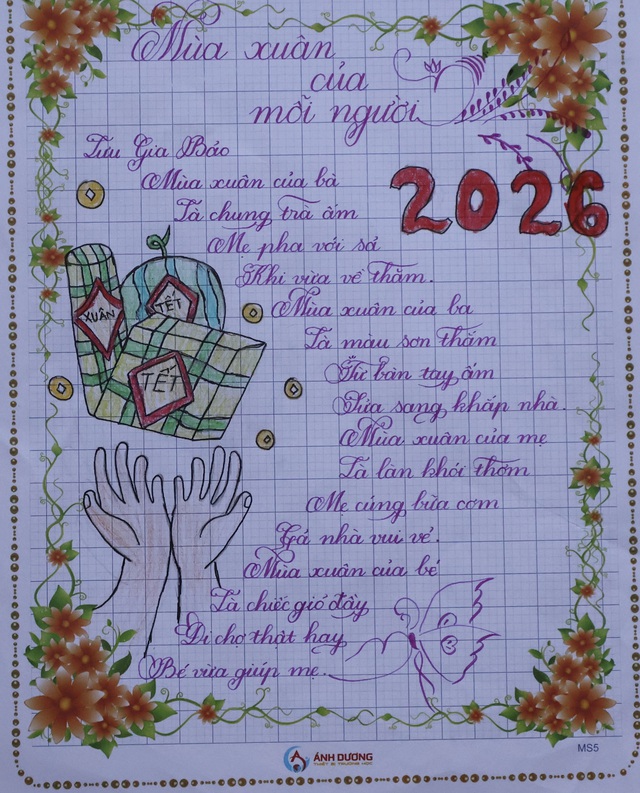 Mùa xuân
của
mỗi người
Lưu Gia Bảo
Mùa xuân của bà
Là chung trà ấm
Mẹ pha với sả
Khi vừa về thăm.
Mùa xuân của ba
Là màu sơn thắm
Từ bàn tay ấm
Sửa sang khắp nhà.
Mùa xuân của mẹ
Là làn khói thơm
Mẹ cúng bữa cơm
Cả nhà vui vẻ.
Mùa xuân của bé
Là chiếc giỏ đầy
Đi chợ thật hay
Bé vừa giúp mẹ.
2026
XUÂN
TẾT
TẾT
ÁNH DƯƠNG
THIẾT BỊ TRƯỜNG HỌC
MS5